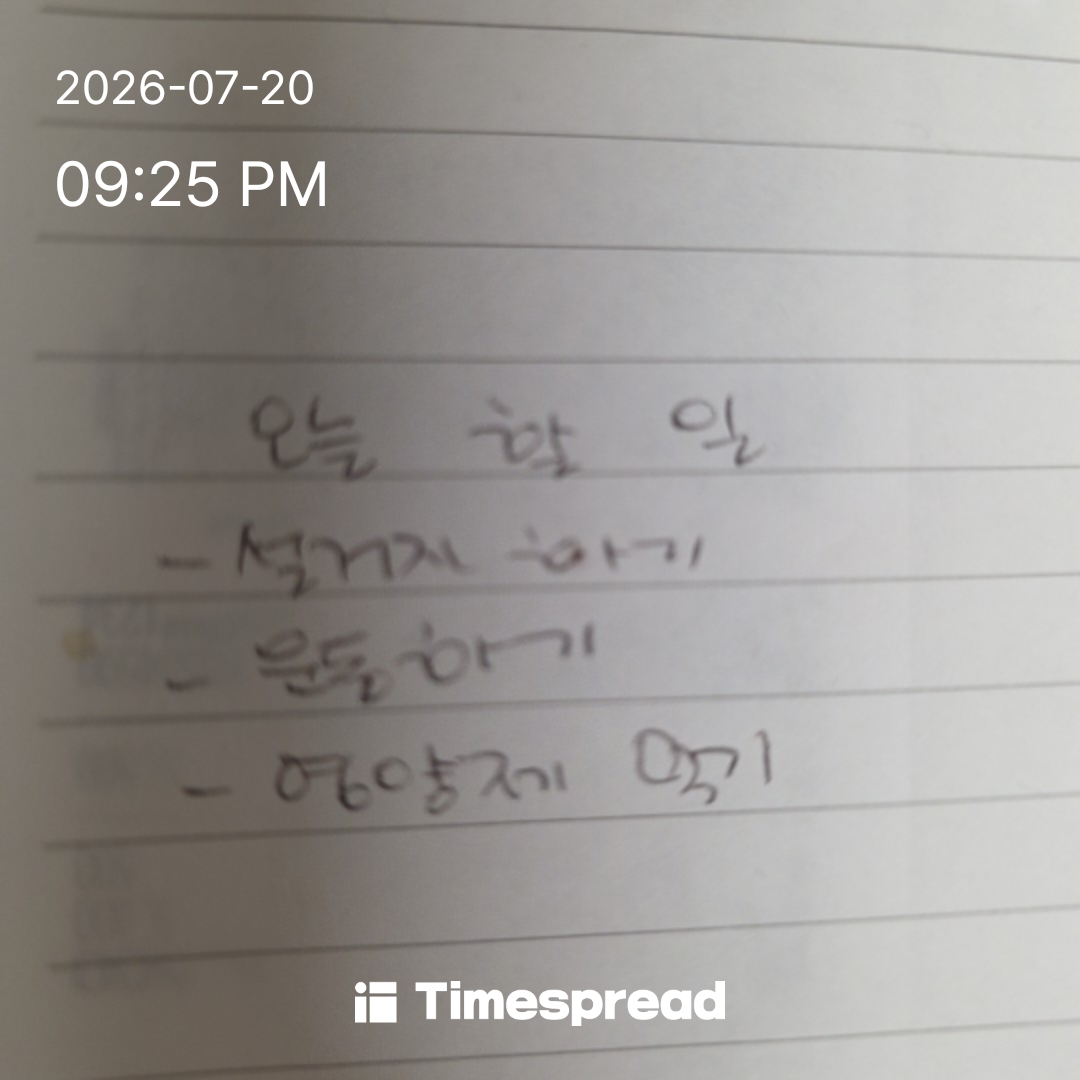 2026-07-20
09:25 PM
오늘 할 일
- 설거지 하기
- 운동하기
- 영양제 먹기
Timespread